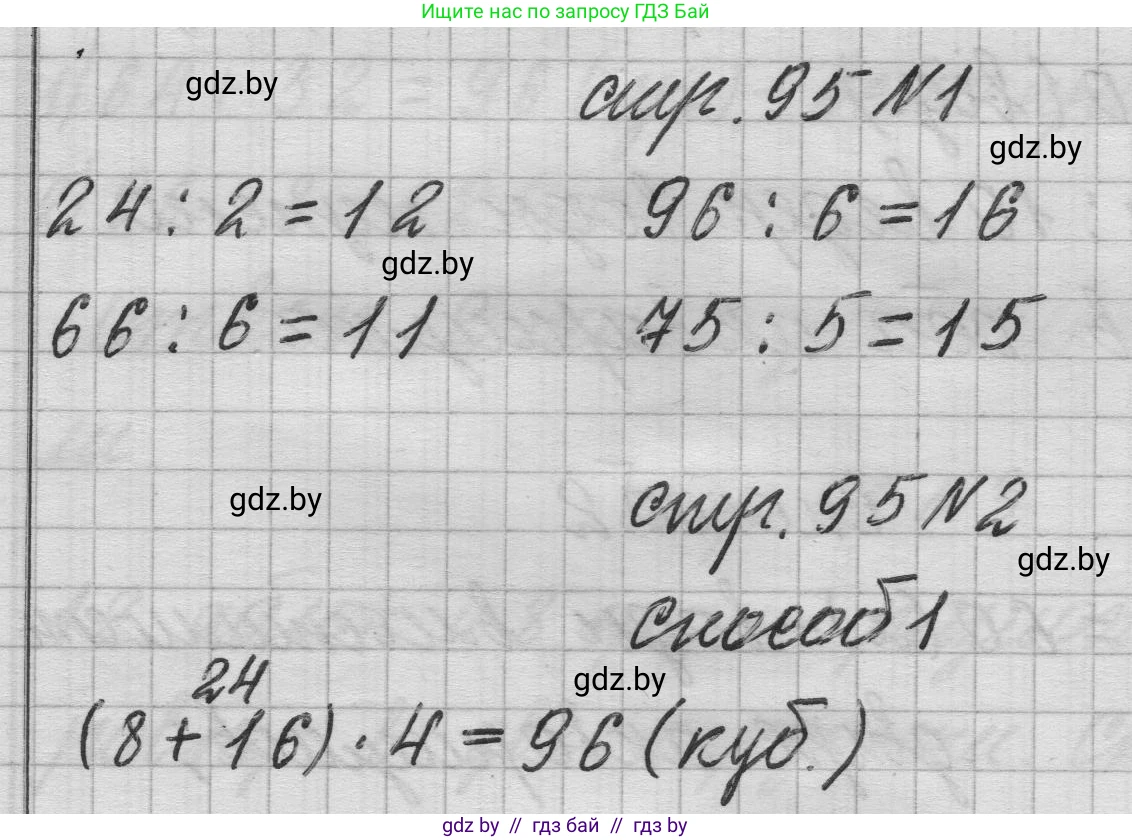 Ищите нас по запросу ГДЗ Бай
gdz.by
стр. 95 N1
gdz.by
24 : 2 = 12 96 : 6 = 16
gdz.by
66 : 6 = 11 75 : 5 = 15
gdz.by
стр. 95 N2
gdz.by
способ 1
24
gdz.by
(8 + 16) · 4 = 96 (куб.)
gdz by // гдз бай // гдз by